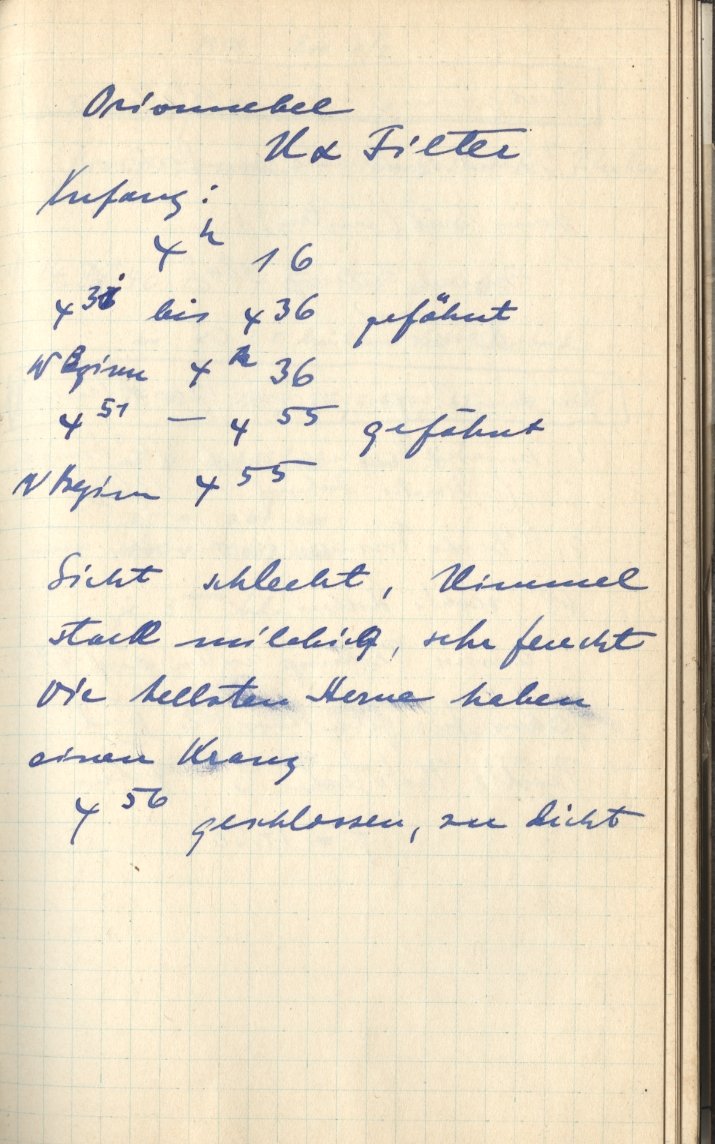 Orionnebel
Hα Filter
Anfang:
4 h 16
4 31 bis 4 36 gefähnt
W Beginn 4 h 36
4 51 – 4 55 gefähnt
W Beginn 4 55
Sicht schlecht, Himmel
stark milchig, sehr feucht
Die hellsten Sterne haben
einen Kranz
4 56 geschlossen, zu dicht